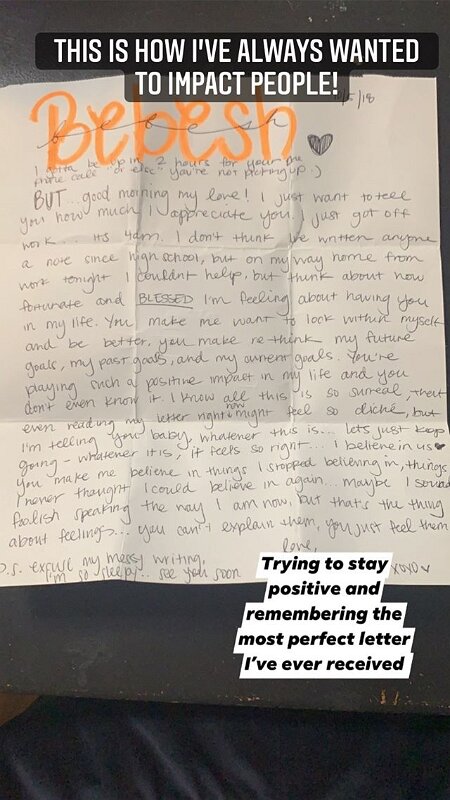 THIS IS HOW I'VE ALWAYS WANTED
TO IMPACT PEOPLE!
/18
Bebesh
bebesh
I gotta be up in 2 hours for your
phone call "or else" you're not picking up :)
BUT... good morning my love! I just want to tell
you how much I appreciate you. I just got off
work... its 4am. I don't think ive written anyone
a note since high school, but on my way home from
work tonight I couldnt help, but think about how
fortunate and BLESSED I'm feeling about having you
in my life. You make me want to look within myself
and be better, you make me re-think my future
goals, my past goals, and my current goals. You're
playing such a positive impact in my life and you
don't even know it. I know all this is so surreal, that
even reading my letter right now might feel so cliché, but
I'm telling you baby, whatever this is... lets just keep
going - whatever it is, it feels so right... I believe in us
You make me believe in things I stopped believing in, things
I never thought I could believe in again... maybe I sound
foolish speaking the way I am now, but that's the thing
about feelings... you can't explain them, you just feel them
Love,
P.S. excuse my messy writing,
I'm so sleepy... see you soon
xoxo
Trying to stay
positive and
remembering the
most perfect letter
I've ever received